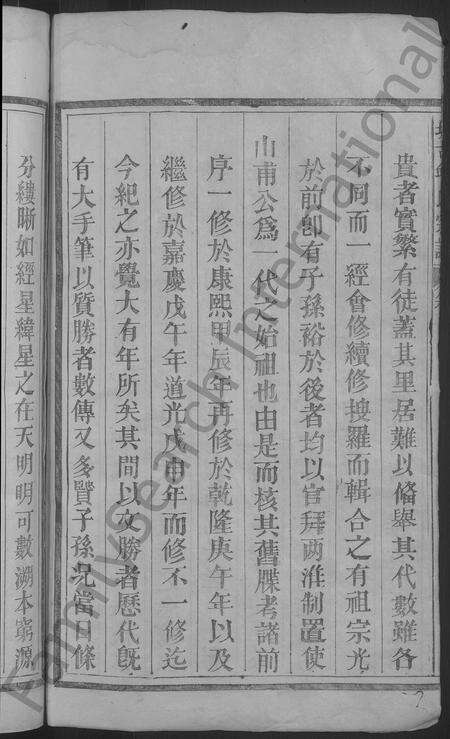 貴者實繁有徒蓋其里居難以備舉其代數雖各
不同而一經會修續修搜羅而輯合之有祖宗光
於前卽有子孫裕於後者均以官拜兩淮制置使
山甫公爲一代之始祖也由是而核其舊牒考諸前
序一修於康熙甲辰年再修於乾隆庚午年以及
繼修於嘉慶戊午年道光戊申年而修不一修迄
今紀之亦覺大有年所矣其間以文勝者歷代旣
有大手筆以質勝者數傳又多賢子孫况當日條
分縷晰如經星緯星之在天明明可數溯本窮源
FamilySearch International